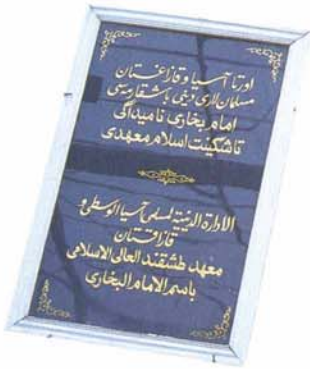 اورتا آسيا و قازاغستان
مسلمان لاری دینی باشقارمه سی
امام بخاری نامیداگی
تاشکینت اسلام معهدی
الادارة الدينية لمسلمي آسيا الوسطى و
قازاقستان
معهد طشقند العالي الاسلامي
باسم الامام البخاري